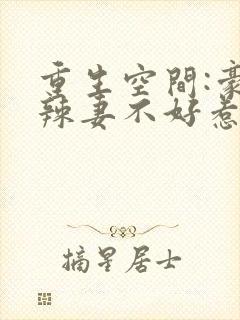 重生空間:豪
辣妻不好惹
摘星居士